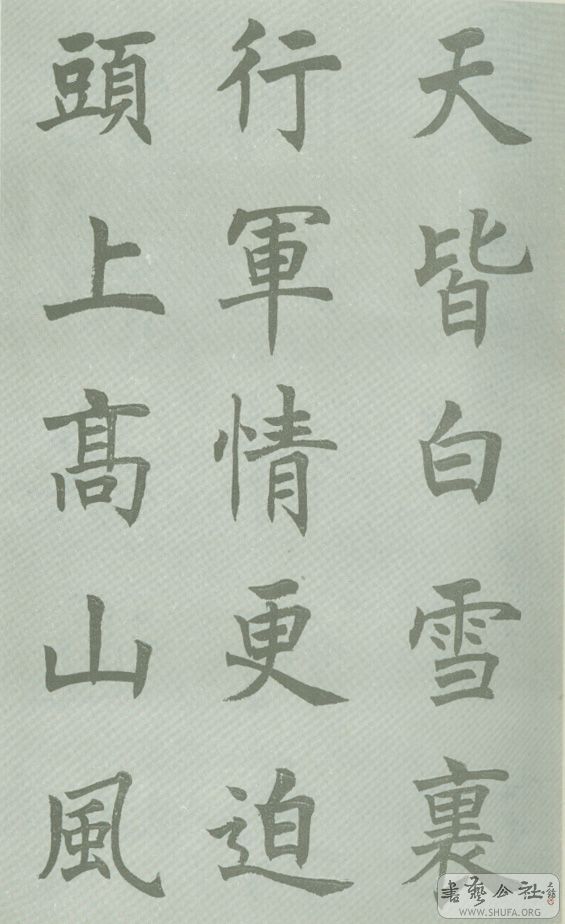 天皆白雪裏
行軍情更迫
頭上髙山風
書藝公社
WWW.SHUFA.ORG